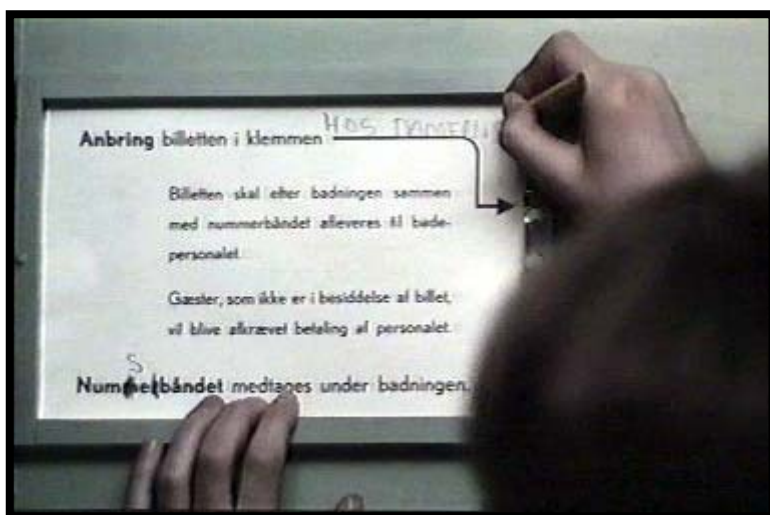 Anbring billetten i klemmen HOS DAMERNE
Billetten skal efter badningen sammen
med nummerbåndet afleveres til bade-
personalet.
Gæster, som ikke er i besiddelse af billet,
vil blive afkrævet betaling af personalet.
S
Nummerbåndet medtages under badningen.